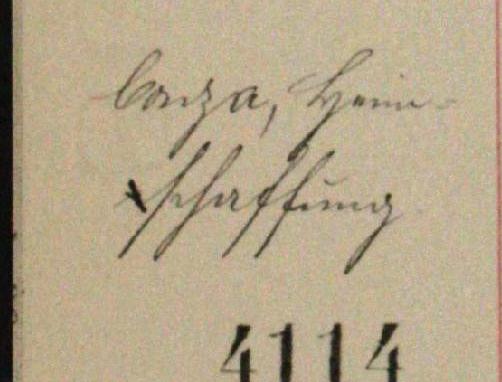 Conza, Heim-
schaffung
4114